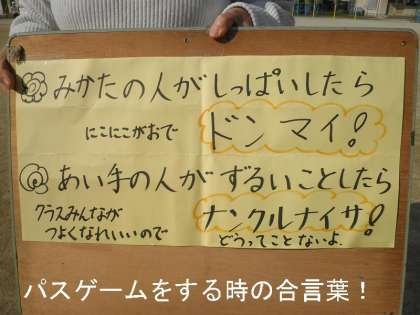 みかたの人がしっぱいしたら
にこにこがおで
ドンマイ!
あい手の人がずるいことしたら
クラスみんなが
つよくなれいいので
ナンクルナイサ!
どうってことないよ.
パスゲームをする時の合言葉!